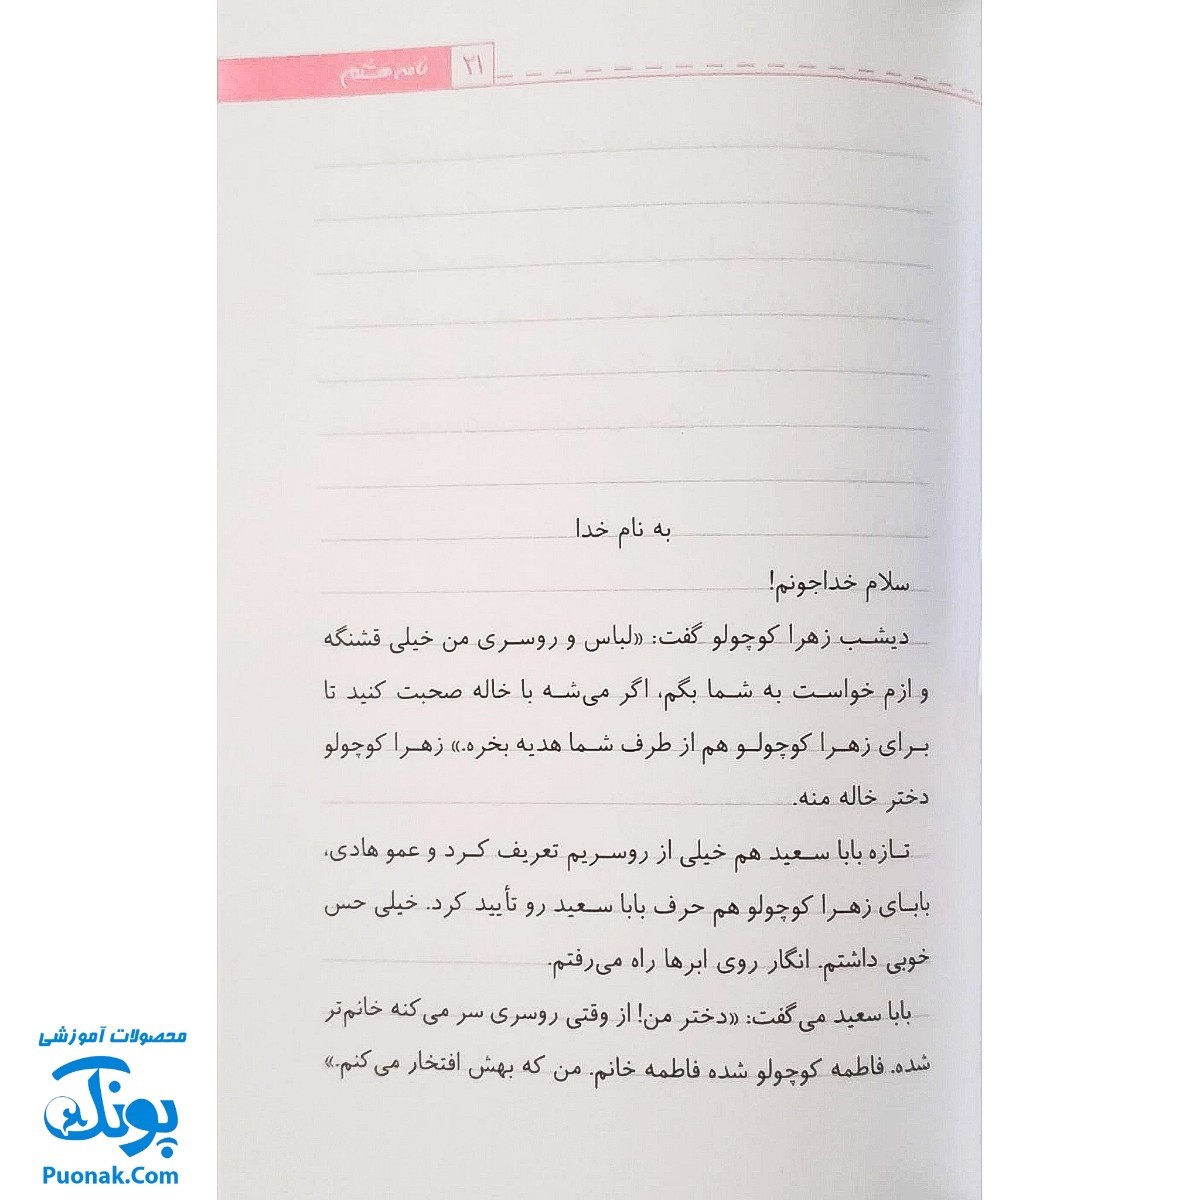 ۲۱ نامه هشتم
به نام خدا
سلام خداجونم!
دیشب زهرا کوچولو گفت: «لباس و روسری من خیلی قشنگه
و ازم خواست به شما بگم، اگر می‌شه با خاله صحبت کنید تا
برای زهرا کوچولو هم از طرف شما هدیه بخره.» زهرا کوچولو
دختر خاله منه.
تازه بابا سعید هم خیلی از روسریم تعریف کرد و عمو هادی،
بابای زهرا کوچولو هم حرف بابا سعید رو تأیید کرد. خیلی حس
خوبی داشتم. انگار روی ابرها راه می‌رفتم.
بابا سعید می‌گفت: «دختر من! از وقتی روسری سر می‌کنه خانم‌تر
شده. فاطمه کوچولو شده فاطمه خانم. من که بهش افتخار می‌کنم.»
محصولات آموزشی
پونک
Puonak.Com